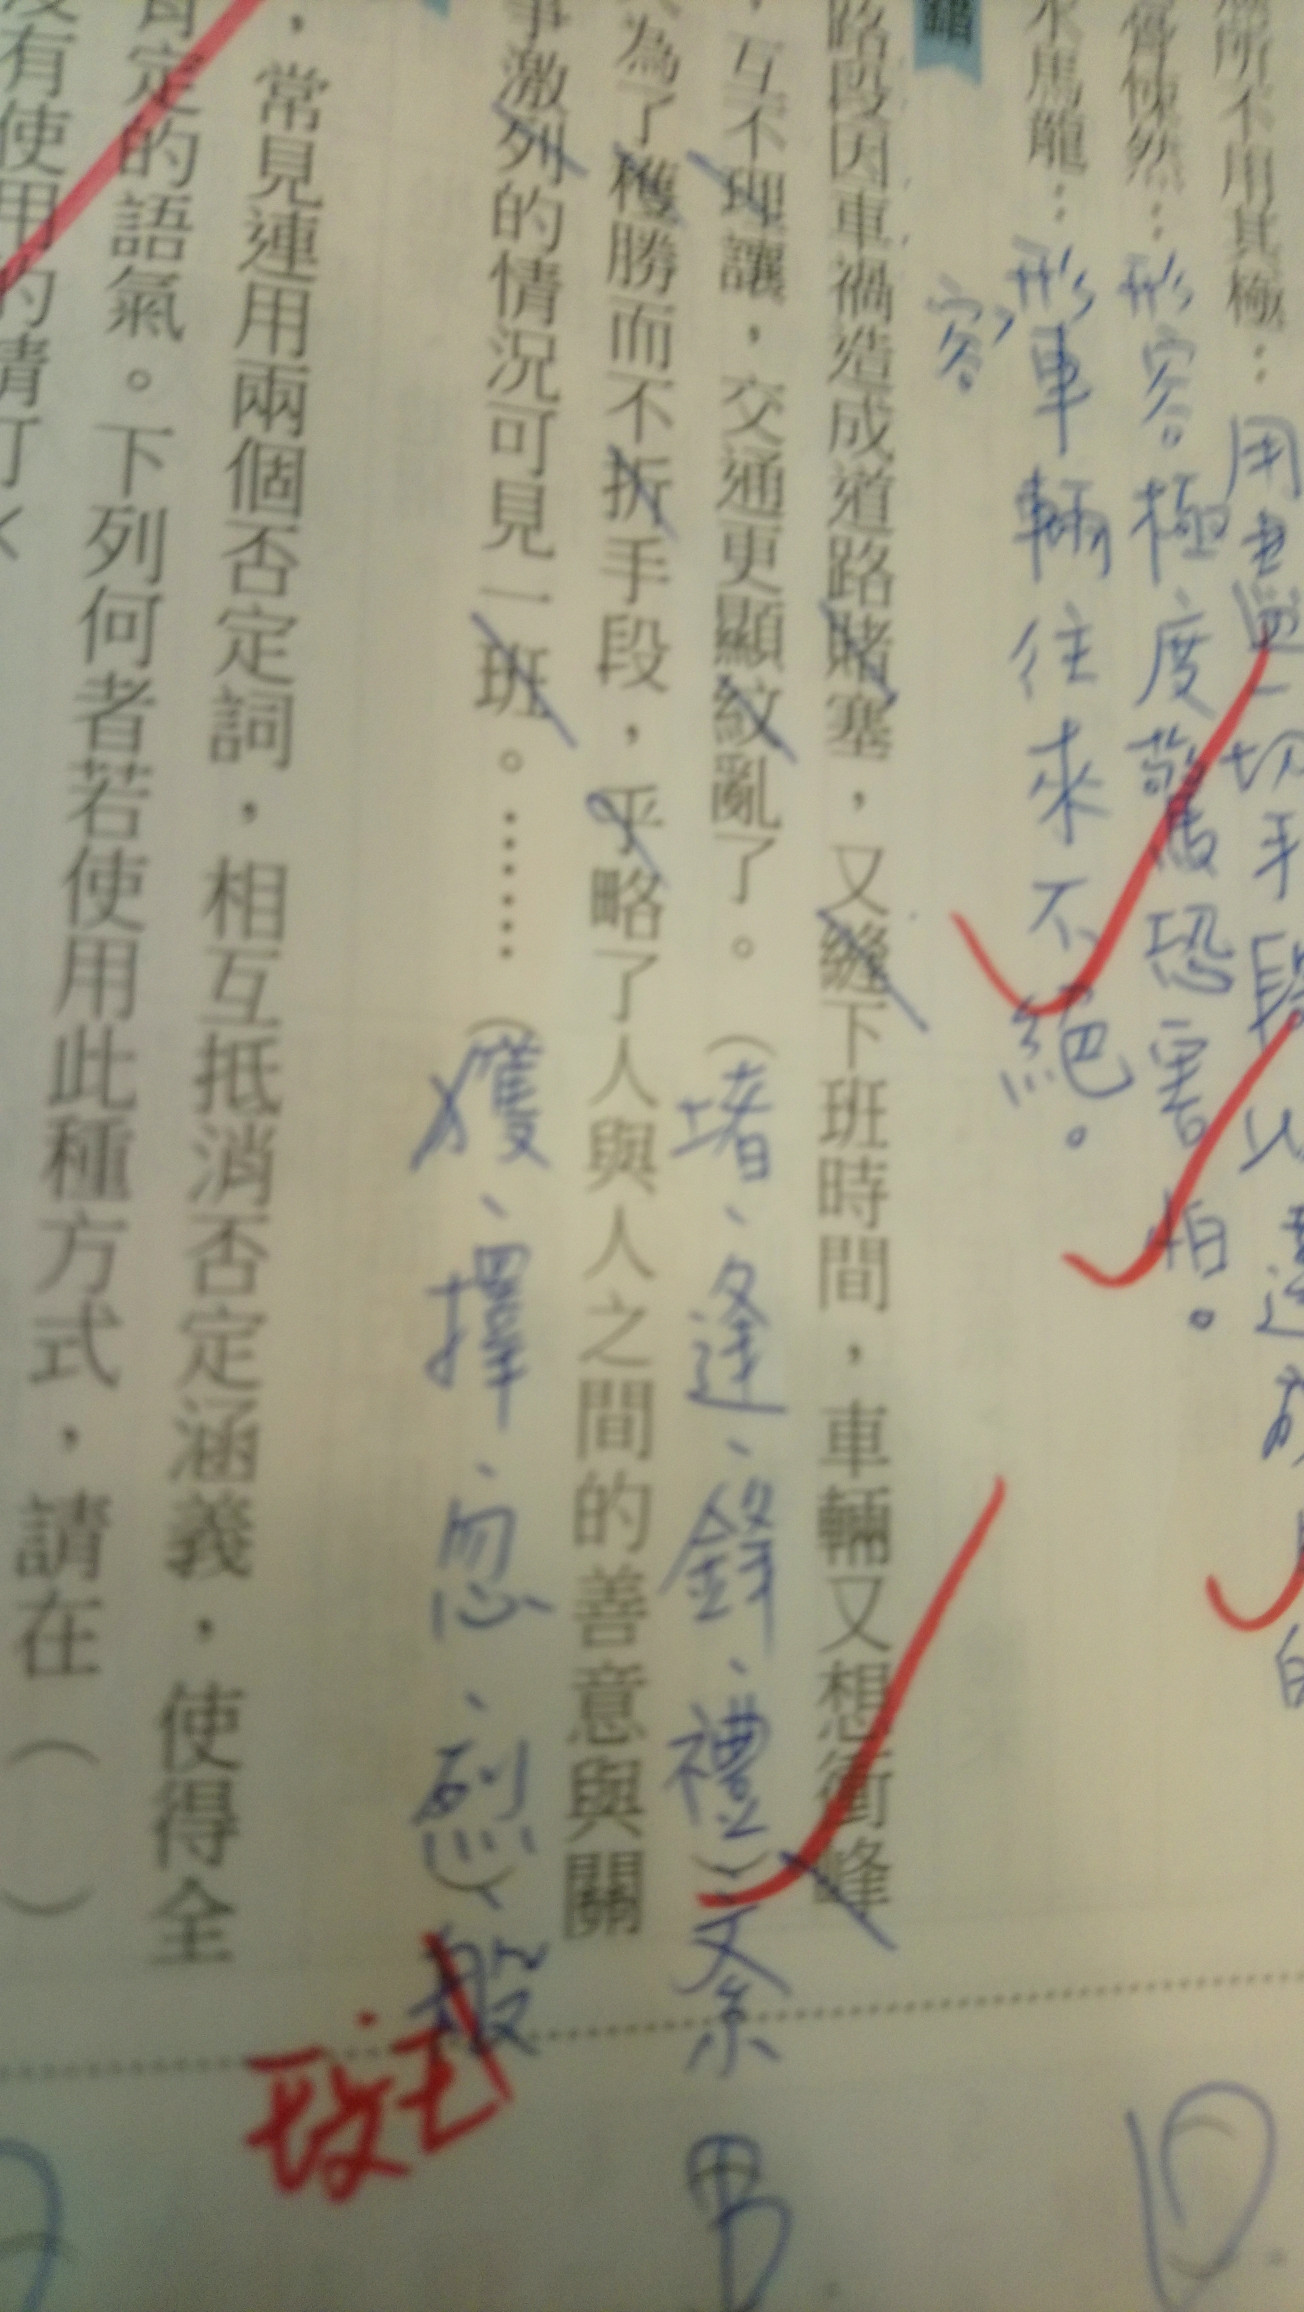 所不用其極：用盡一切手段以達
脊悚然：形容極度驚駭恐害怕。
水馬龍：形車輛往來不絕。
容
路段因車禍造成道路賭塞，又縫下班時間，車輛又想衝峰
，互不理讓，交通更顯紋亂了。（堵、逢、鋒、禮）、紊
為了穫勝而不折手段，乎略了人與人之間的善意與關
爭激列的情況可見一班。……（獲、擇、忽、烈）、般
斑
，常見連用兩個否定詞，相互抵消否定涵義，使得全
肯定的語氣。下列何者若使用此種方式，請在（　）
沒有使用的請打ㄨ